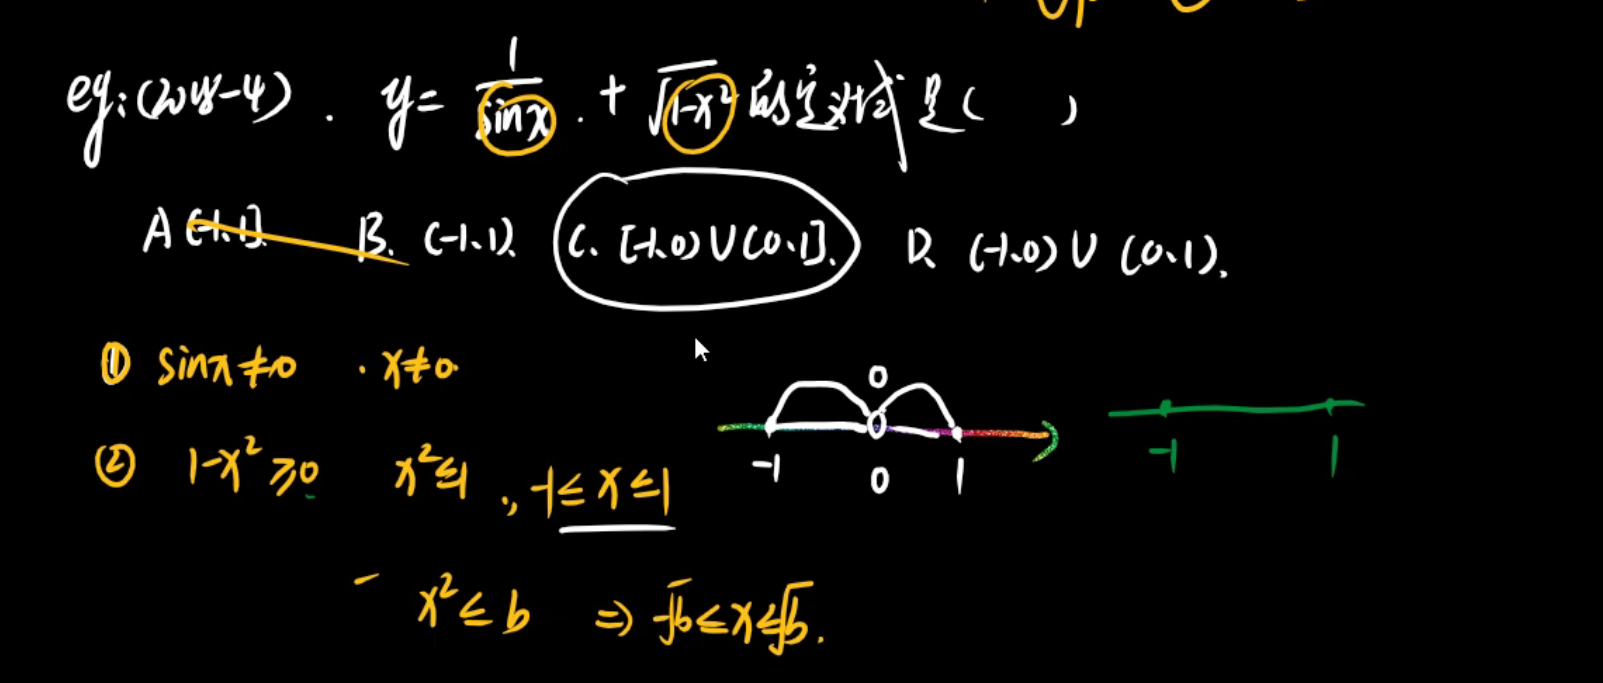 eg:(2018-4). y= 1/sinx + √1-x² 的定义域是( )
A [-1.1]. B. (-1.1). C. [-1.0)∪(0.1]. D. (-1.0)∪(0.1).
① sinx≠0 . x≠0.
0
② 1-x²≥0 x²≤1 ., -1≤x≤1
-1 0 1
-1 1
x²≤b ⇒ -√b≤x≤√b.